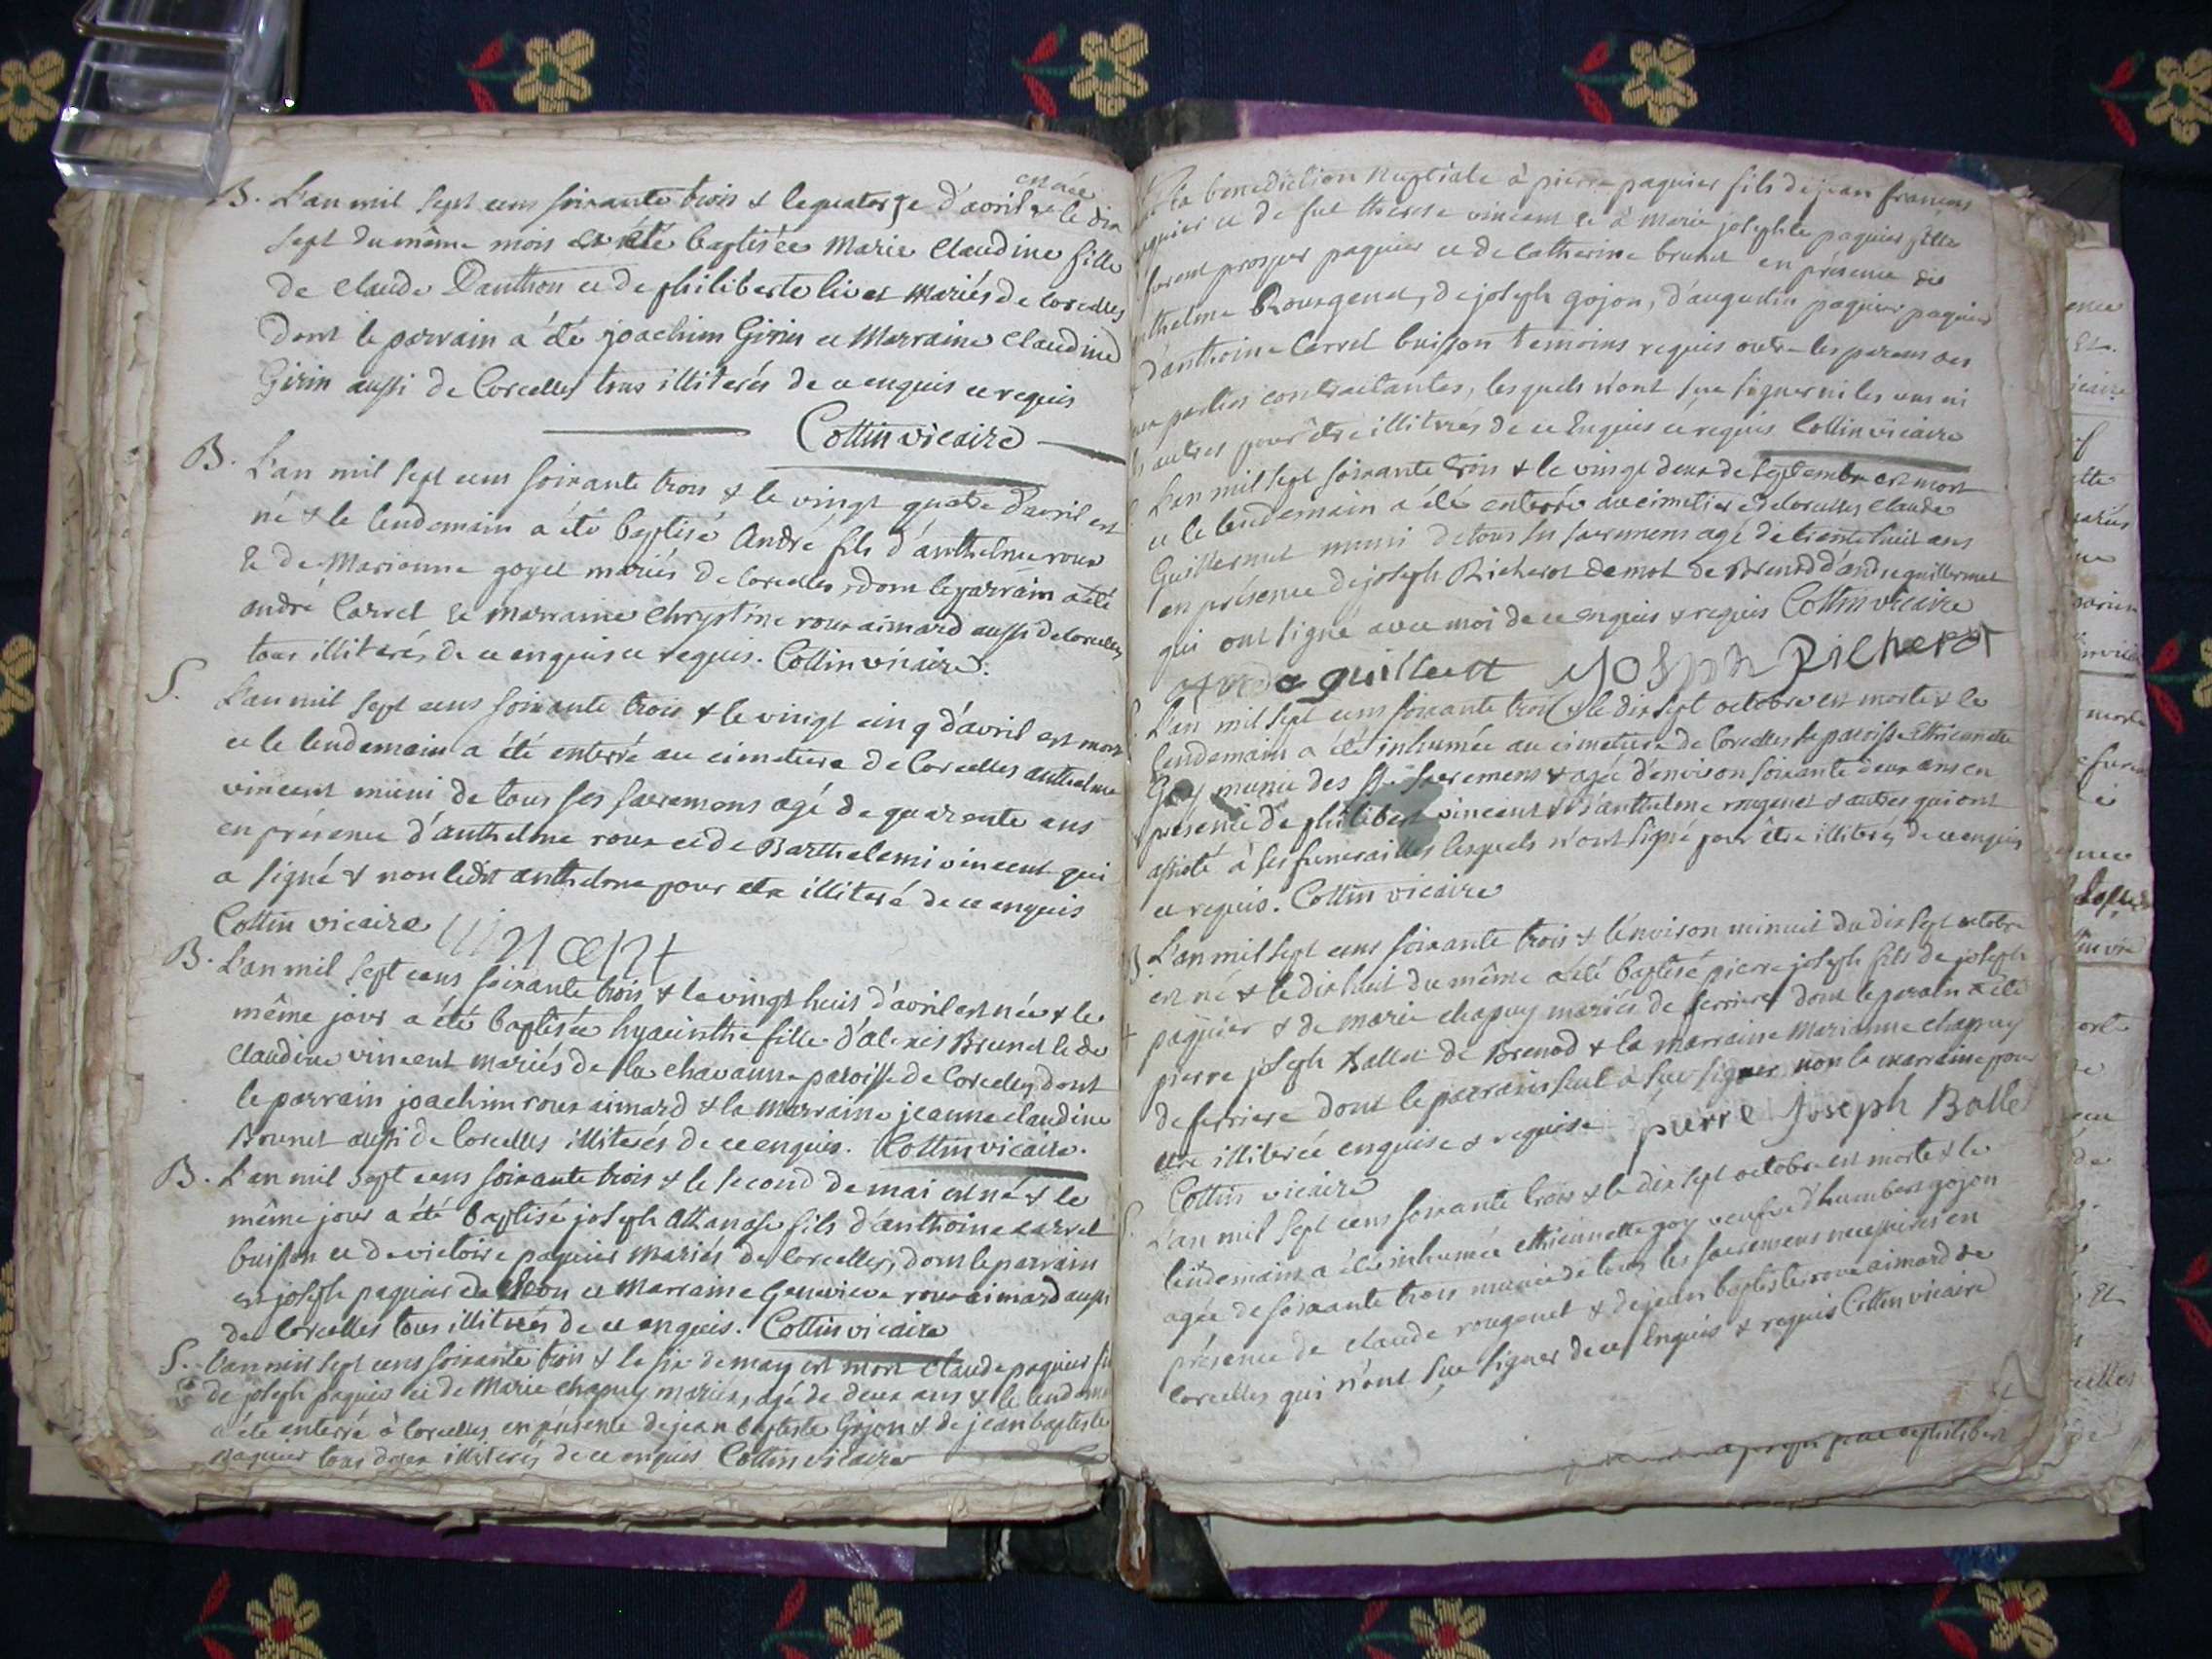 est née
B. L'an mil sept cens soixante trois & le quatorze d'avril & le dix
sept du même mois a été baptisée Marie Claudine fille
de Claude Danthon et de philiberte livet mariés de Corcelles
dont le parrain a été joachim Girin et Marraine Claudine
Girin aussi de Corcelles tous illiterés de ce enquis et requis
Collin vicaire
B. L'an mil sept cens soixante trois & le vingt quatre d'avril est
né & le lendemain a été baptisé André fils d'anthelme roux
& de Marianne goyet mariés de Corcelles, dont le parrain a été
andré Carrel & marraine Chrystine roux aimard aussi de Corcelles
tous illiterés de ce enquis et requis. Collin vicaire.
S. L'an mil sept cens soixante trois & le vingt cinq d'avril est mort
et le lendemain a été enterré au cimetiere de Corcelles anthelme
vincent muni de tous ses sacremens agé de quarante ans
en présence d'anthelme roux et de Barthelemi vincent qui
a signé & non ledit anthelme pour etre illiteré de ce enquis
Collin vicaire
B. L'an mil sept cens soixante trois & le vingt huit d'avril est née & le
même jour a été baptisée hyacinthe fille d'alexis Brunet & de
Claudine vincent mariés de la chavanne paroisse de Corcelles, dont
le parrain joachim roux aimard & la marraine jeanne claudine
Brunet aussi de Corcelles illiterés de ce enquis. Collin vicaire.
B. L'an mil sept cens soixante trois & le second de mai est né & le
même jour a été baptisé joseph Attanase fils d'anthoine carrel
buisson et de victoire paquier mariés de Corcelles, dont le parrain
est joseph paquier et Marraine Genevieve roux aimard aussi
de Corcelles tous illiterés de ce enquis. Collin vicaire
S. L'an mil sept cens soixante trois & le six de may est mort Claude paquier fils
de joseph paquier et de Marie chapuy mariés, agé de deux ans & le lendemain
a été enterré à Corcelles en présence de jean baptiste Gojon & de jean baptiste
paquier tous deux illiterés de ce enquis Collin vicaire
la benediction nuptiale à pierre paquier fils de jean françois
paquier et de fue therese vincent & à Marie josephte paquier fille
prosper paquier et de Catherine brunet en présence de
anthelme Rougenet, de joseph gojon, d'augustin paquier paquier
d'anthoine Carrel buisson temoins requis outre les parens des
parties contractantes, lesquels n'ont sue signer ni les uns ni
les autres pour être illiterés de ce Enquis et requis Collin vicaire
L'an mil sept soixante trois & le vingt deux de septembre est mort
et le lendemain a été enterré au cimetiere de Corcelles Claude
Guillermet muni de tous ses sacremens agé de trente huit ans
en présence de joseph Richerot de Brenod d'andre guillermet
qui ont signé avec moi de ce enquis & requis Collin vicaire
guillermet Joseph Richerot
L'an mil sept cens soixante trois & le dix sept octobre est morte & le
lendemain a été inhumée au cimetiere de Corcelles sa paroisse Ethiennette
Goy munie des Sts. sacremens & agée d'environ soixante deux ans en
présence de philibert vincent & d'anthelme rougenet & autres qui ont
assisté à ses funerailles lesquels n'ont signé pour être illiterés de ce enquis
et requis. Collin vicaire
B L'an mil sept cens soixante trois & l'environ minuit du dix sept octobre
est né & le dix huit du même a été baptisé pierre joseph fils de joseph
paquier & de marie chapuy mariés de ferriere dont le parain a été
pierre joseph Ballet de Brenod & la marraine Marianne chapuy
de ferriere dont le parrain seul a sue signer non la marraine pour
etre illiterée enquise & requise pierre Joseph Balle
Collin vicaire
L'an mil sept cens soixante trois & le dix sept octobre est morte & le
lendemain a été inhumée ethiennette goy veufve d'humbert gojon
agée de soixante trois munie de tous les sacremens necessaires en
présence de claude rougenet & de jean baptiste roux aimard de
Corcelles qui n'ont sue signer de ce Enquis & requis Collin vicaire